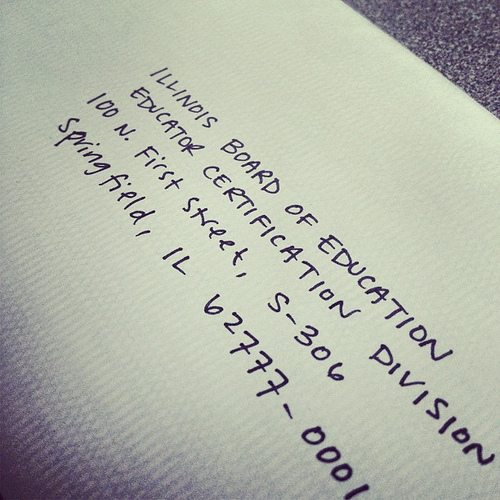 ILLINOIS BOARD OF EDUCATION
EDUCATOR CERTIFICATION DIVISION
100 N. First Street, S-306
Springfield, IL 62777-0001